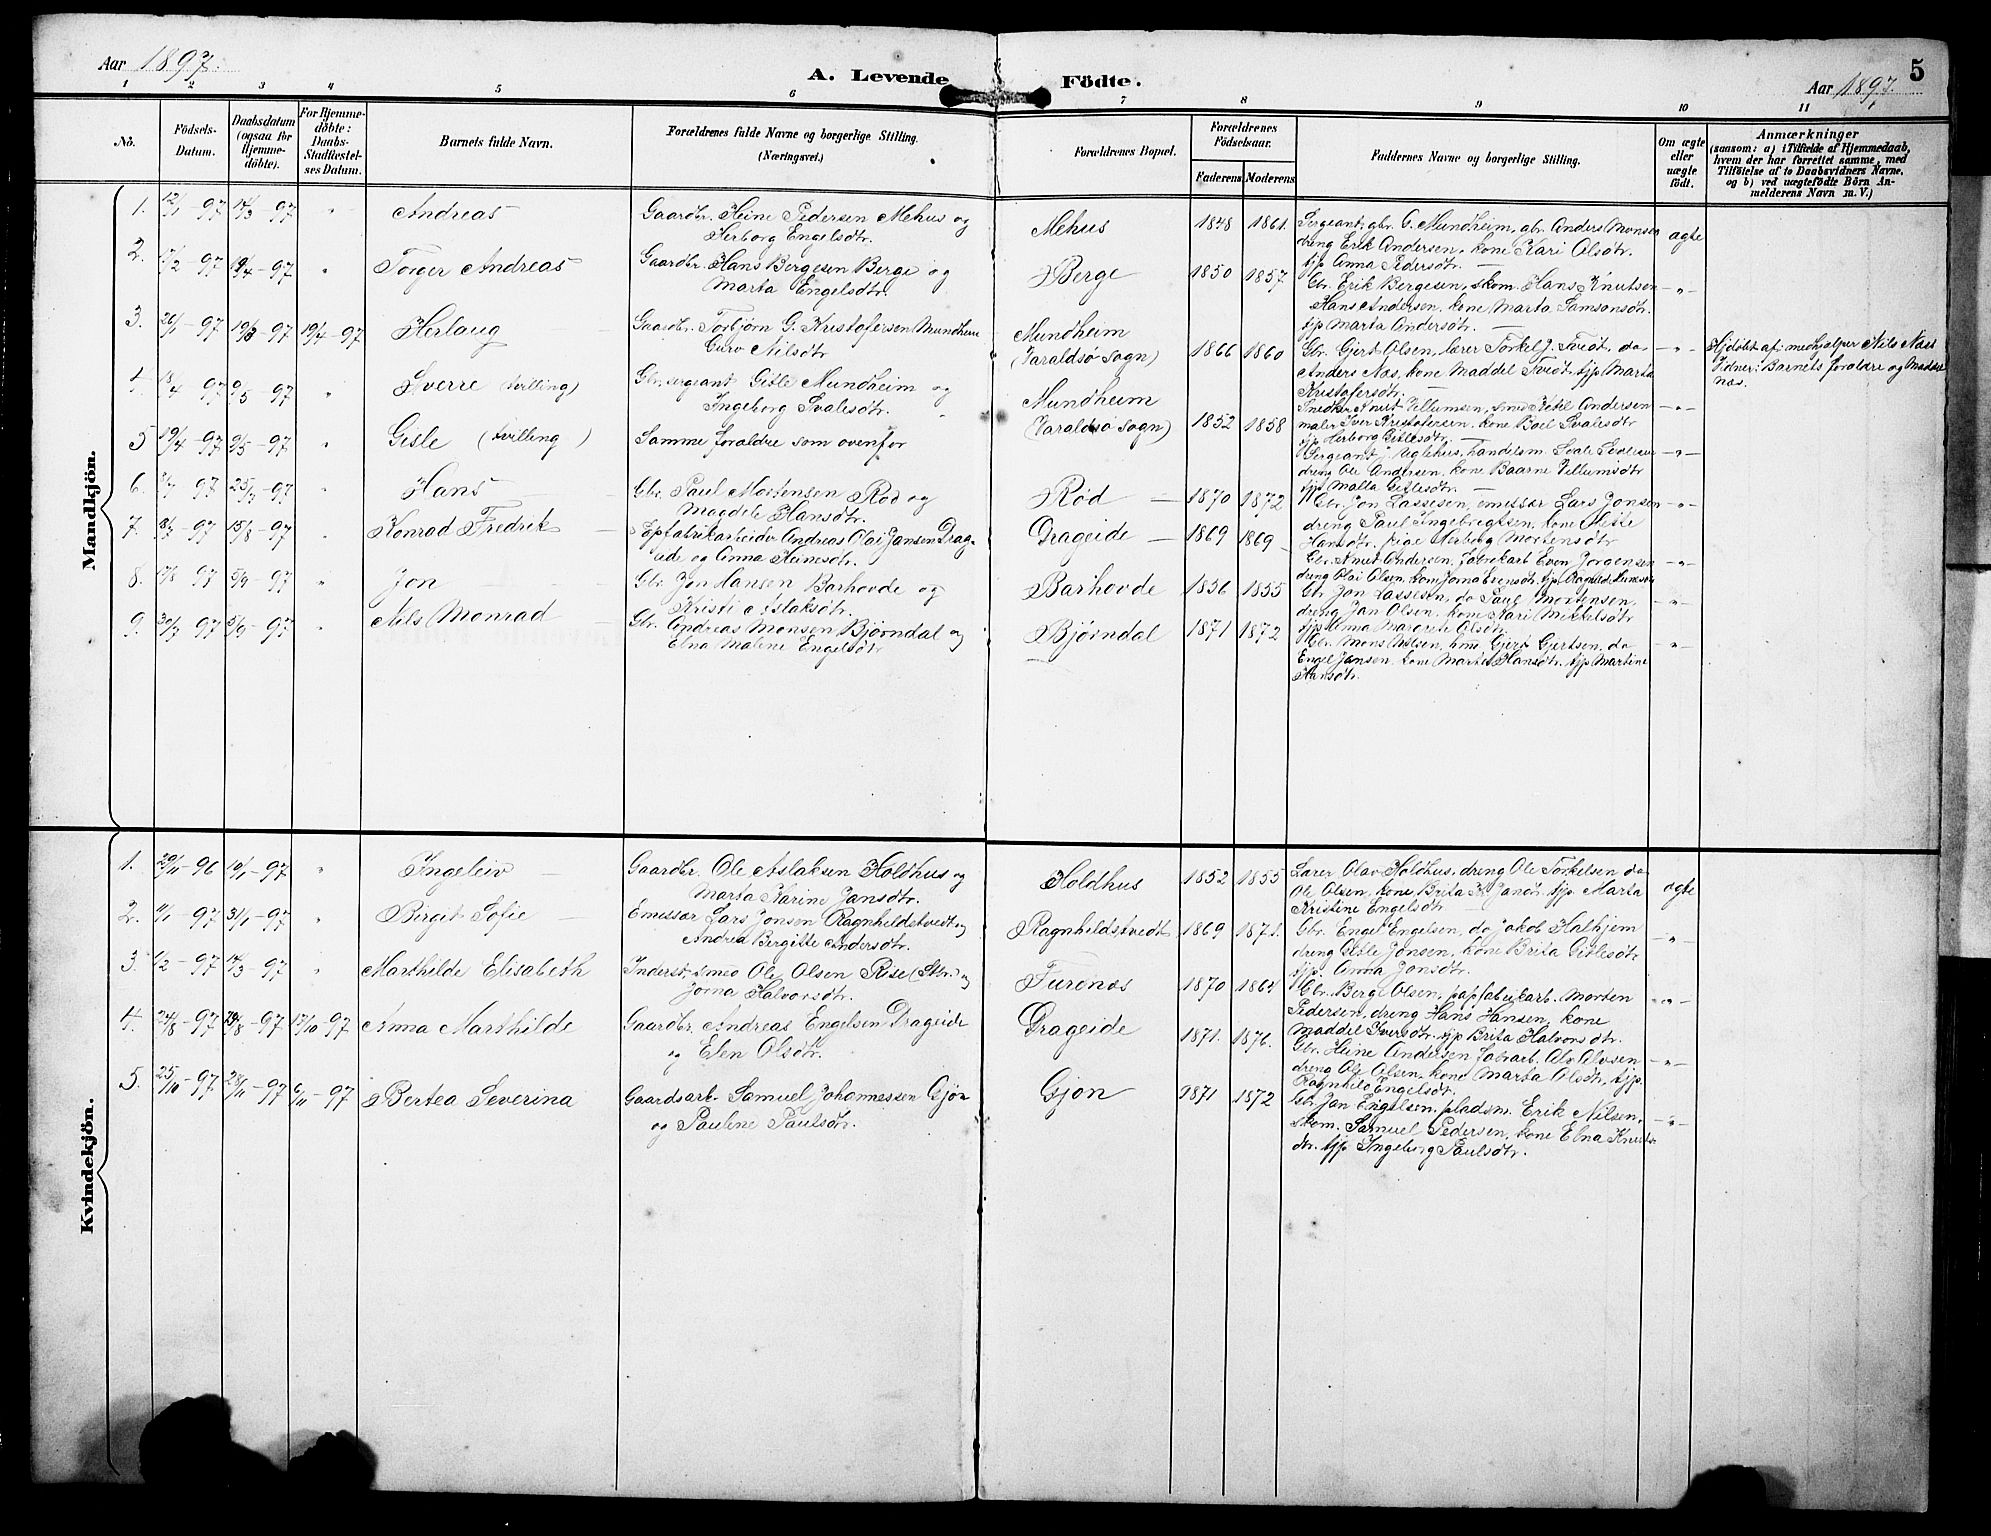 Aar 1897.
A. Levende Födte.
5
Aar 1897.
1 2 3 4 5 6 7 8 9 10 11
No.
Födsels-
Datum.
Daabsdatum
(ogsaa for
Hjemme-
döbte).
For Hjemme-
döbte:
Daabs-
Stadfæstel-
ses Datum.
Barnets fulde Navn.
Forældrenes fulde Navne og borgerlige Stilling.
(Næringsvei.)
Forældrenes Bopæl.
Forældrenes
Födselsaar.
Faderens Moderens
Faddernes Navne og borgerlige Stilling.
Om ægte
eller
uægte
født.
Anmærkninger
(saasom: a) i Tilfælde af Hjemmedaab,
hvem der har forrettet samme, med
Tilföielse af to Daabsvidners Navne,
og b) ved uægtefödte Börn An-
melderens Navn m. V.)
Mandkjön.
1. 12/1 97 14/3 97 " Andreas
Gaardbr. Heine Pedersen Mehus og
Herborg Engelsdtr.
Mehus 1848 1861.
Sergeant, gbr. G. Mundheim, gbr. Anders Monsen
dreng Erik Andersen, kone Kari Olsdtr.
tjp Anna Pedersdtr.
ægte
2. /2 97 /4 97 " Torger Andreas
Gaardbr. Hans Bergesen Berge og
Marta Engelsdtr.
Berge 1850 1857.
Gbr. Erik Bergesen, skom. Hans Knutsen
Hans Andersen, kone Marta Samsonsdtr.
tjp Marta Andersdtr.
-"-
3. 26/1 97 19/3 97 19/4 97 Herlaug
Gaardbr. Torbjørn G. Kristofersen Mundheim
Guro Nilsdtr
Mundheim
(Varaldsø Sogn) 1866 1860
Gbr. Gjert Olsen, lærer Torkel J. Tveit, do
Anders Næs, kone Maddel Tveit tjp Marta
Kristofersdtr.
-"-
Hjdøbt af medhjælper Nils Næs
Vidner: Barnets forældre og
Næs.
4. 18/4 97 9/5 97 " Sverre (tvilling)
Gbr. sergeant Gitle Mundheim og
Ingeborg Svalesdtr.
Mundheim
(Varaldsø Sogn) 1852 1858
Snedker Knut Villumsen, smed Ketil Andersen
maler Iver Kristofersen, kone Boel Svalesdtr
tjp Herborg Gitlesdtr.
-"-
5 19/4 97 9/5 97 " Gitle (tvilling)
Samme forældre som ovenfor
Sergeant J. Uglehus, handelsm. Svale
dreng Ole Andersen, kone Baarne Villumsdtr
tjp Malta Gitlesdtr.
-"-
6. 97 25/7 97 " Hans
Gbr. Paul Mortensen Rød og
Magdele Hansdtr.
Rød 1870 1872
Gbr Jon Lassesen, emissær Lars Jonsen
dreng Paul Ingebregtsen, kone
Hansdtr. pige Herborg Mortensdtr
-"-
7. 97 15/8 97 " Konrad Fredrik
Papfabrikarbeider Andreas Olai Jansen Drag-
eide og Anna Heinesdtr.
Drageide 1869 1869
Gbr. Knut Andersen, fabrikarb Even Jørgensen
dreng Olai Olsen, kone Jorna Evensdtr. tjp Ragnilde
-"-
8. 97 5/9 97 " Jon
Gbr. Jon Hansen Barhovde og
Kristi Aslaksdtr.
Barhovde 1856 1855
Gbr Jon Lassesen, do Paul Mortensen.
dreng Jan Olsen, kone Kari Mikkelsdtr
tjp Anna Margrete Olsdtr.
-"-
9. 30/7 97 5/9 97 " Nils Monrad
Gbr. Andreas Monsen Bjørndal og
Elna Maline Engelsdtr
Bjørndal 1871 1872
Gbr. Mons Nilsen, Gjert Gjertsen, do
Engel Jansen, kone Marta Hansdtr. tjp Martine
Hansdtr.
-"-
Kvindekjön.
1. 29/11 96 /1 97 " Ingeleiv
Gaardbr. Ole Aslaksen Holdhus og
Marta Karine Jansdtr.
Holdhus 1852 1855
Lærer Olav Holdhus, dreng Ole Torkelsen do
Ole Olsen, kone Brita K. Jansdtr. tjp. Marta
Kristine Engelsdtr
ægte
2. /1 97 31/1 97 " Birgit Sofie
Emissær Lars Jonsen Ragnheldstvedt og
Andrea Bergitte Andersdtr.
Ragnheldstvedt 1869 1871.
Gbr. Engel Engelsen, do Jakob Hathjem
dreng Gitle Jonsen, kone Brita Gitlesdtr
tjp. Anna Jonsdtr.
-"-
3. /2 97 14/3 97 " Marthilde Elisabeth
Inderst smed Ole Olsen Rise og
Jorna Halvorsdtr.
Furenæs 1870 1864
Gbr. Berge Olsen, papfabrikarb. Morten
Pedersen, dreng Hans Hansen, kone
Maddel Iversdtr. tjp Brita Halvorsdtr.
-"-
4. 24/8 97 29/8 97 17/10 97 Anna Marthilde
Gaardbr. Andreas Engelsen Drageide
og Elen Olsdtr.
Drageide 1871. 1876.
Gbr. Heine Andersen, fabrarb. Alv Alvsen
dreng Ole Olsen, kone Marta Olsdtr, tjp.
Ragnhild Engelsdtr.
-"-
5. 25/10 97 28/11 97 6/11 97 Bertea Severina
Gaardsarb. Samuel Johannessen Gjøn
og Pauline Paulsdtr.
Gjøn 1871 1872
Gbr. Jan Engelsen, pladsm. Erik Nilsen,
skom. Samuel Pedersen, kone Elna Knuts-
dtr. tjp Ingeborg Paulsdtr.
-"-